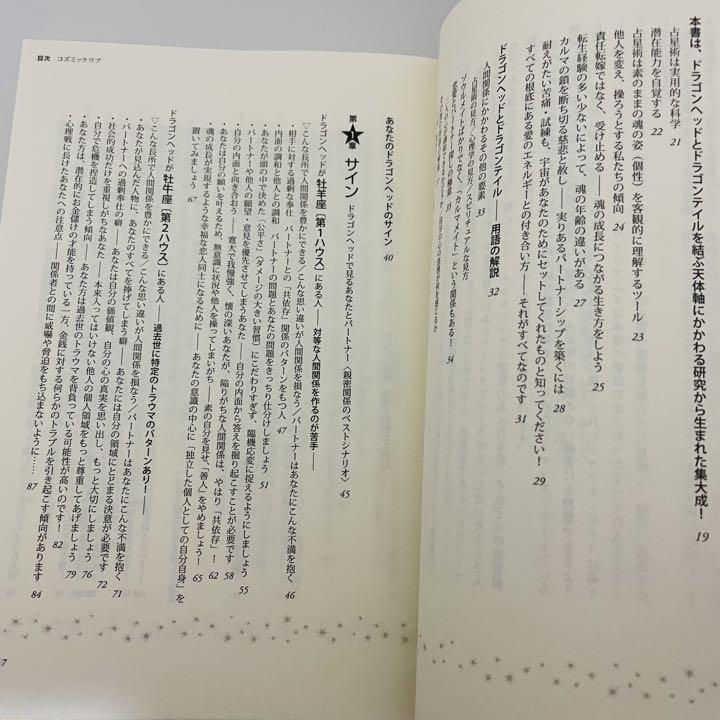 本書は、ドラゴンヘッドとドラゴンテイルを結ぶ天体軸にかかわる研究から生まれた集大成！ 19
占星術は実用的な科学 21
潜在能力を自覚する 22
占星術は素のままの魂の姿（個性）を客観的に理解するツール 23
他人を変え、操ろうとする私たちの傾向 24
責任転嫁ではなく、受け止める──魂の成長につながる生き方をしよう 25
転生経験の多い少ないによって、魂の年齢の違いがある 27
カルマの鎖を断ち切る慈悲と赦し──実りあるパートナーシップを築くには 28
耐えがたい苦痛・試練も、宇宙があなたのためにセットしてくれたものと知ってください！ 29
すべての根底にある愛のエネルギーとの付き合い方──それがすべてなのです 31
ドラゴンヘッドとドラゴンテイル──用語の解説 32
人間関係にかかわるその他の要素 33
占星術の見方／心理学の見方／スピリチュアルな見方
ソウルメイトばかりでなく、「カルマメイト」という関係もある！ 34
35
目次 コズミックラブ
あなたのドラゴンヘッドのサイン 40
第1章 サイン ドラゴンヘッドで見るあなたとパートナー〈親密関係のベストシナリオ〉 45
ドラゴンヘッドが牡羊座（第1ハウス）にある人──対等な人間関係を作るのが苦手──
▽こんな長所で人間関係を豊かにできる／こんな思い違いが人間関係を損なう／パートナーはあなたにこんな不満を抱く 46
・相手に対する過剰な奉仕 パートナーとの「共依存」関係のパターンをもつ人 47
・内面の調和と他人との調和 パートナーの問題とあなたの問題をきっちり仕分けしましょう 51
・あなたが頭の中で決めた「公平さ」（ダメージの大きい習慣）にこだわりすぎず、臨機応変に捉えるようにしましょう 55
・パートナーや他人の願望・意見を優先させてしまうあなた──自分の内面から答えを掘り起こすことが必要です 58
・自分の内面と向き合おう──寛大で我慢強く、懐の深いあなたが、陥りがちな人間関係は、やはり「共依存」！ 62
・あなたは自分の願いを叶えるため、無意識に状況や他人を操ってしまいがち──素の自分を見せ、「善人」をやめましょう！ 65
・魂の成長が実現するような幸福な恋人同士になるために──あなたの意識の中心に「独立した個人としての自分自身」を
置いてみましょう 67
ドラゴンヘッドが牡牛座（第2ハウス）にある人──過去世に特定のトラウマのパターンあり！──
▽こんな長所で人間関係を豊かにできる／こんな思い違いが人間関係を損なう／パートナーはあなたにこんな不満を抱く 71
・あなたが見込んだ人物に、あなたのすべてを捧げてしまう癖──あなたには自分の領域にとどまる決意が必要です 72
・パートナーへの過剰奉仕の癖──あなたは自分の価値観、自分の心の真実を思い出し、もっと大切にしましょう 76
・社会的成功だけを重視しがちなあなた──本来入ってはいけない他人の個人領域をもっと尊重してあげましょう 79
・自分で危機を捏造してしまう傾向──あなた方は過去世のトラウマを背負っている可能性が高いのです！ 82
・あなた方は、潜在的にお金儲けの才能を持っている一方、金銭に対する何らかのトラブルを引き起こす傾向があります 84
・心理戦に長けたあなたへの注意点──関係者との間に威嚇や脅迫をもち込まないように…… 87
7